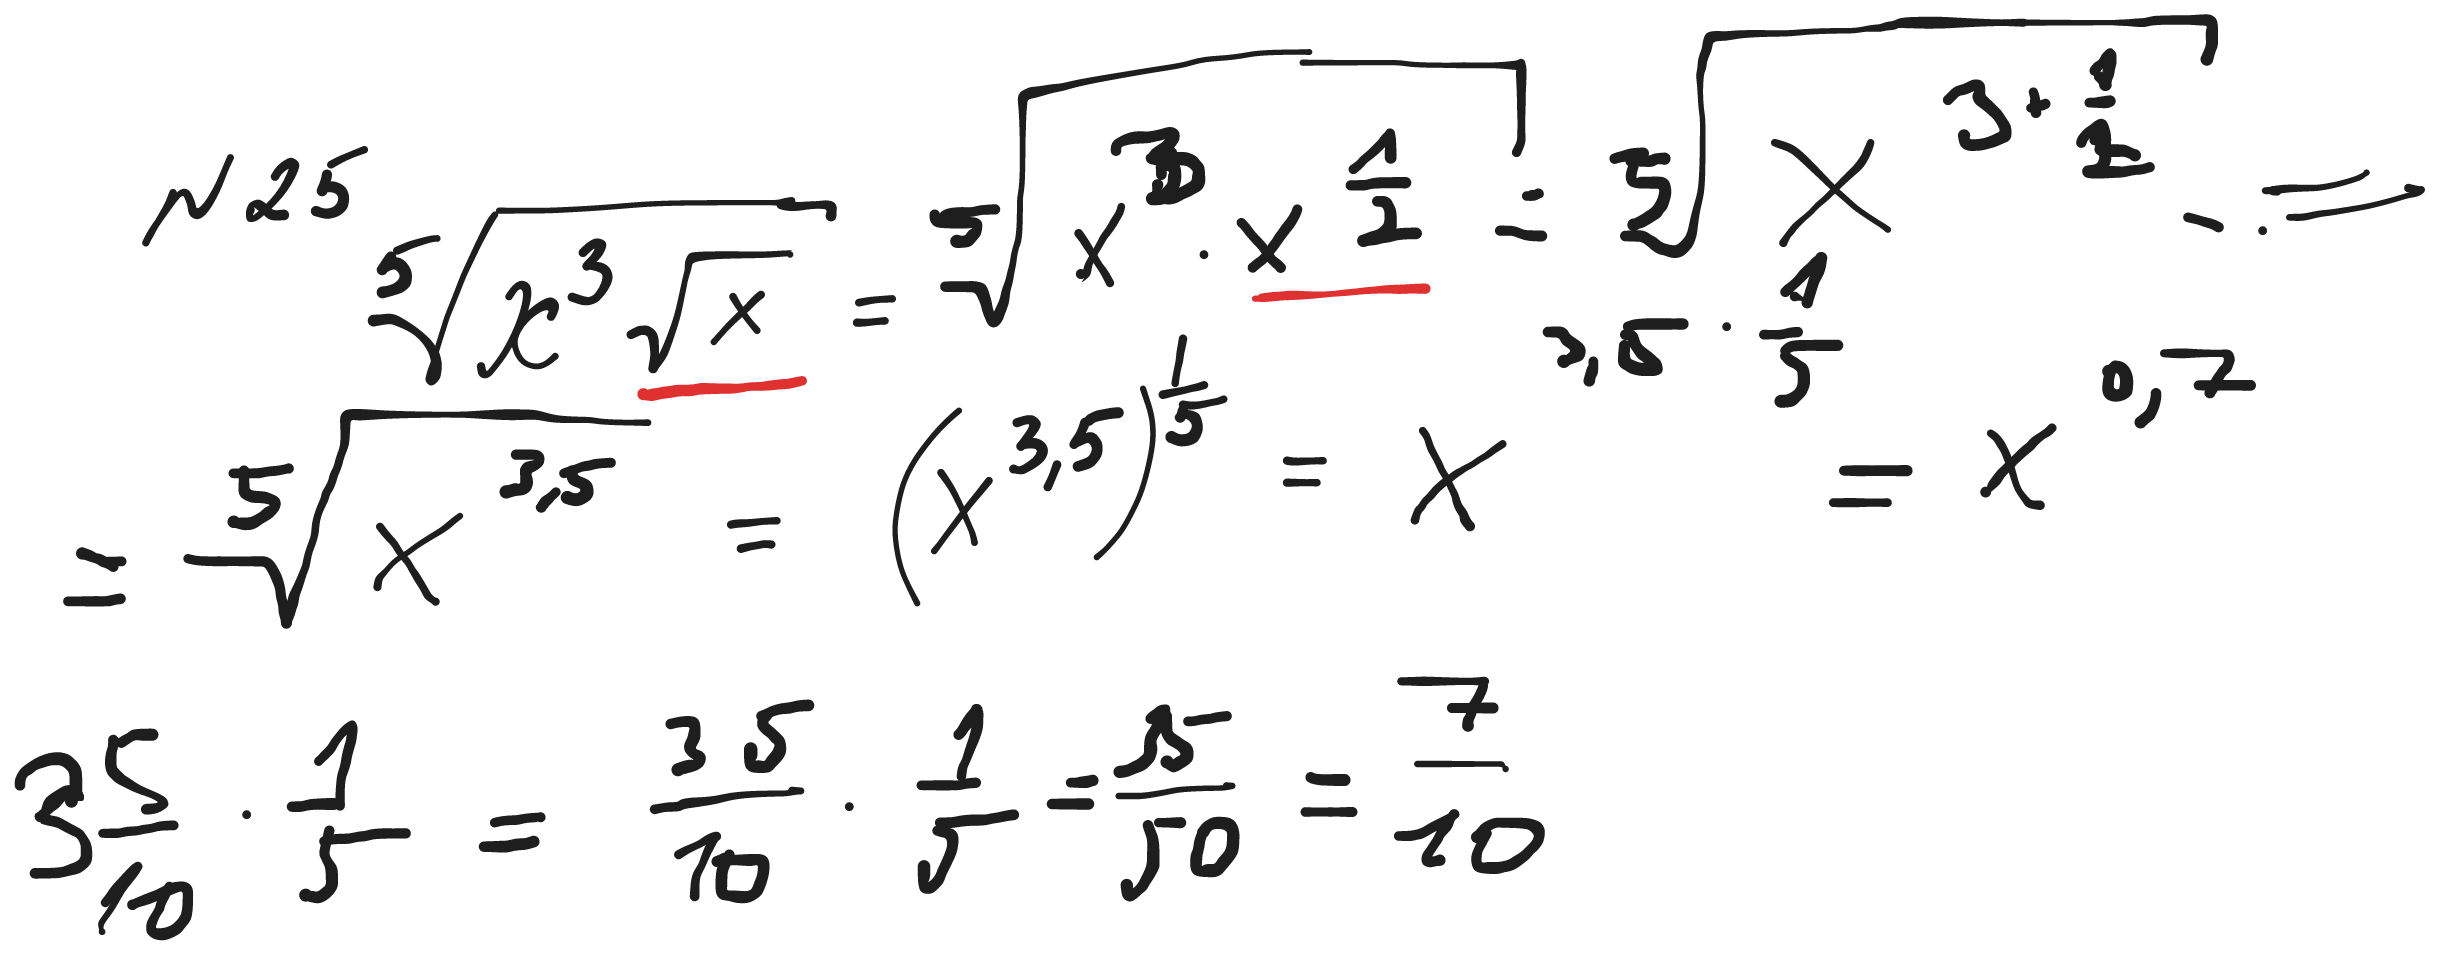 №25
⁵√(x³√x) = ⁵√(x³ · x^(1/2)) = ⁵√(x^(3+1/2)) =
= ⁵√(x^(3,5)) = (x^(3,5))^(1/5) = x^(3,5 · 1/5) = x^(0,7)
3 5/10 · 1/5 = 35/10 · 1/5 = 35/50 = 7/10